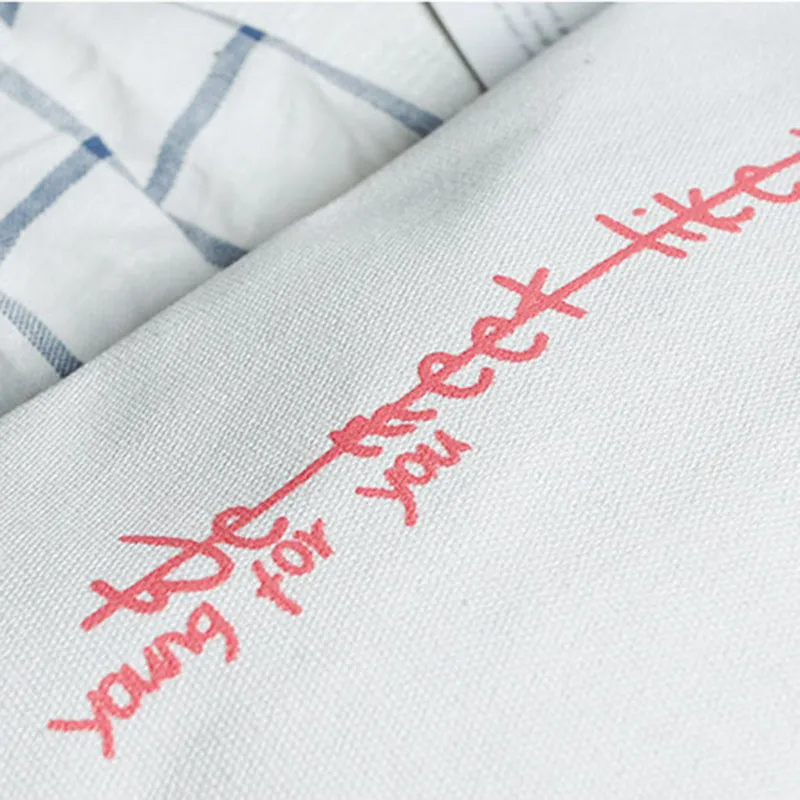 be meet like
young for you